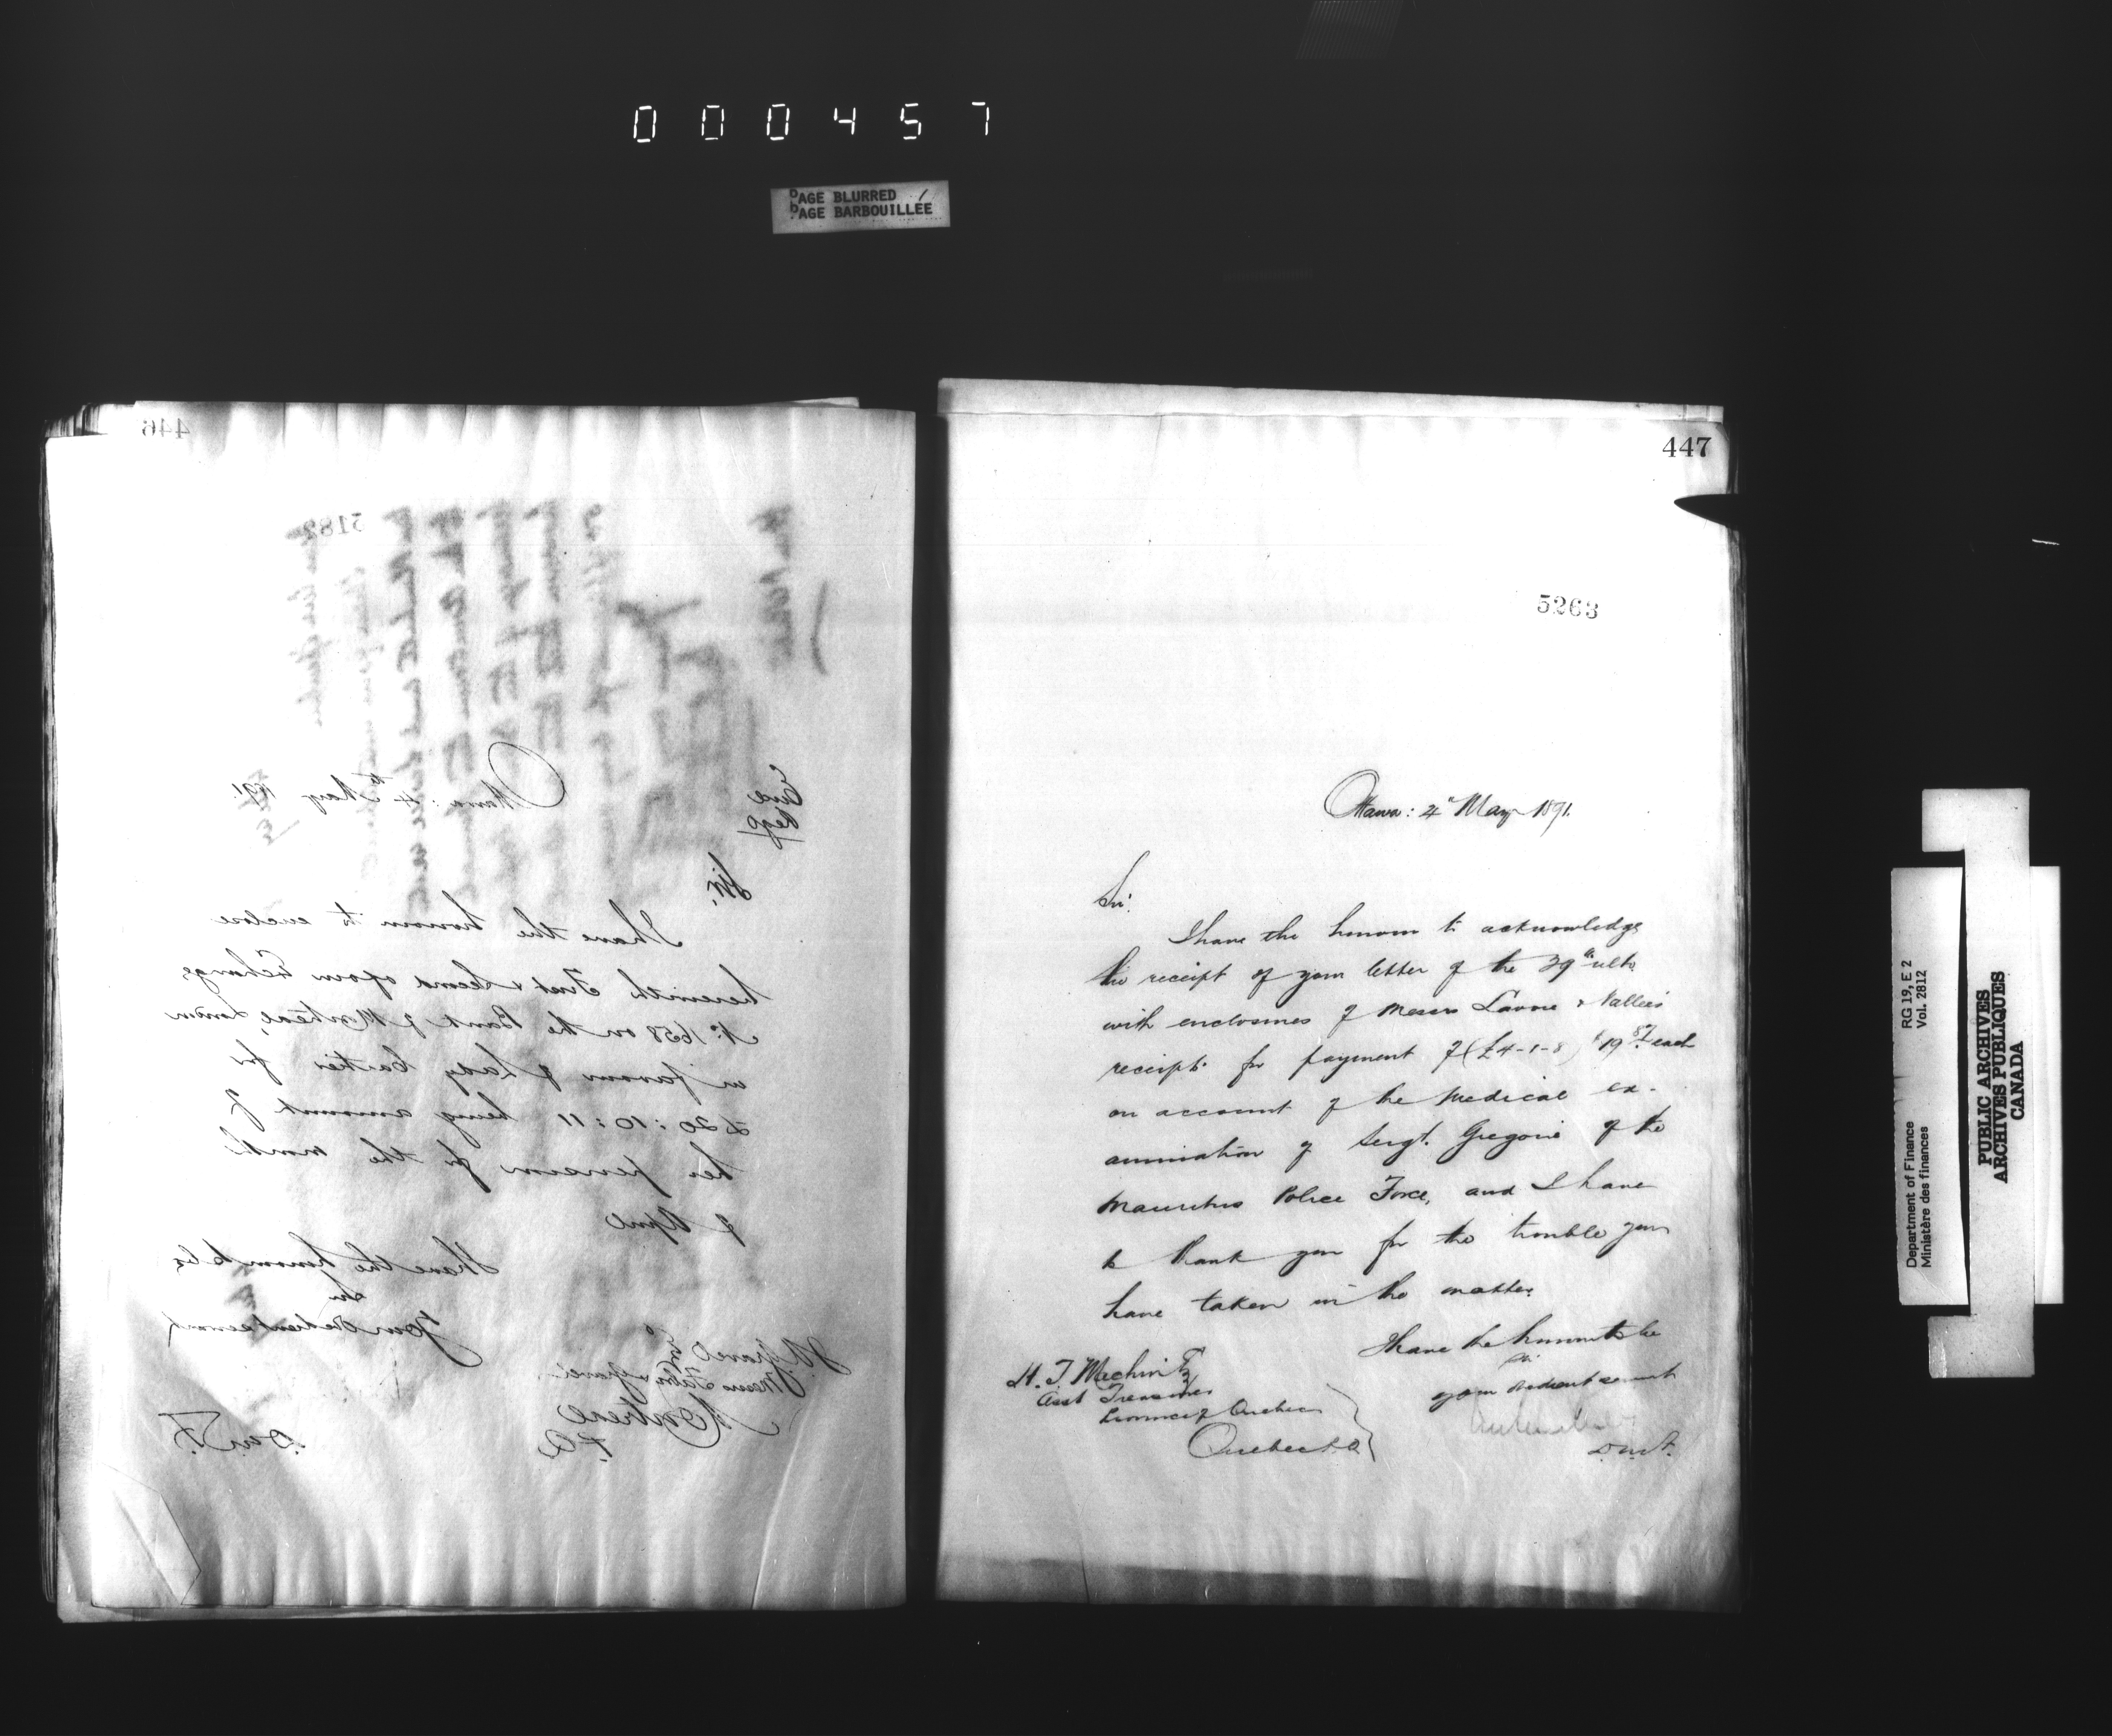 0 0 0 4 5 7
PAGE BLURRED
PAGE BARBOUILLÉE
446
5182
Encl
Regd
Ottawa: 4th May 1891.
Sir,
I have the honour to enclose
herewith First & Second of our Exchange
No. 1658 on the Bank of Montreal, London
in favour of Lady Cartier for
£20:10:11 being amount of
her pension for the month
of April
I have the honour to be
Sir
Your obedient servant
Gravel Esq
Messrs Fabre & Gravel
Montreal
P.Q.
D.M.F.
447
5263
Ottawa: 4" May 1891.
Sir,
I have the honour to acknowledge
the receipt of your letter of the ulto.
with enclosures of Messrs & Vallee's
receipts for payment of (£4-1-8) $19.87 each
on account of the medical ex-
amination of Sergt. Gregoire of the
Mauritius Police Force, and I have
to thank you for the trouble you
have taken in the matter.
I have the honour to be
Sir
your obedient servant
D.M.F.
H. T. Machin Esq
Asst Treasurer
Province of Quebec
Quebec P.Q.
Department of Finance
Ministère des finances
RG 19, E 2
Vol. 2812
PUBLIC ARCHIVES
ARCHIVES PUBLIQUES
CANADA